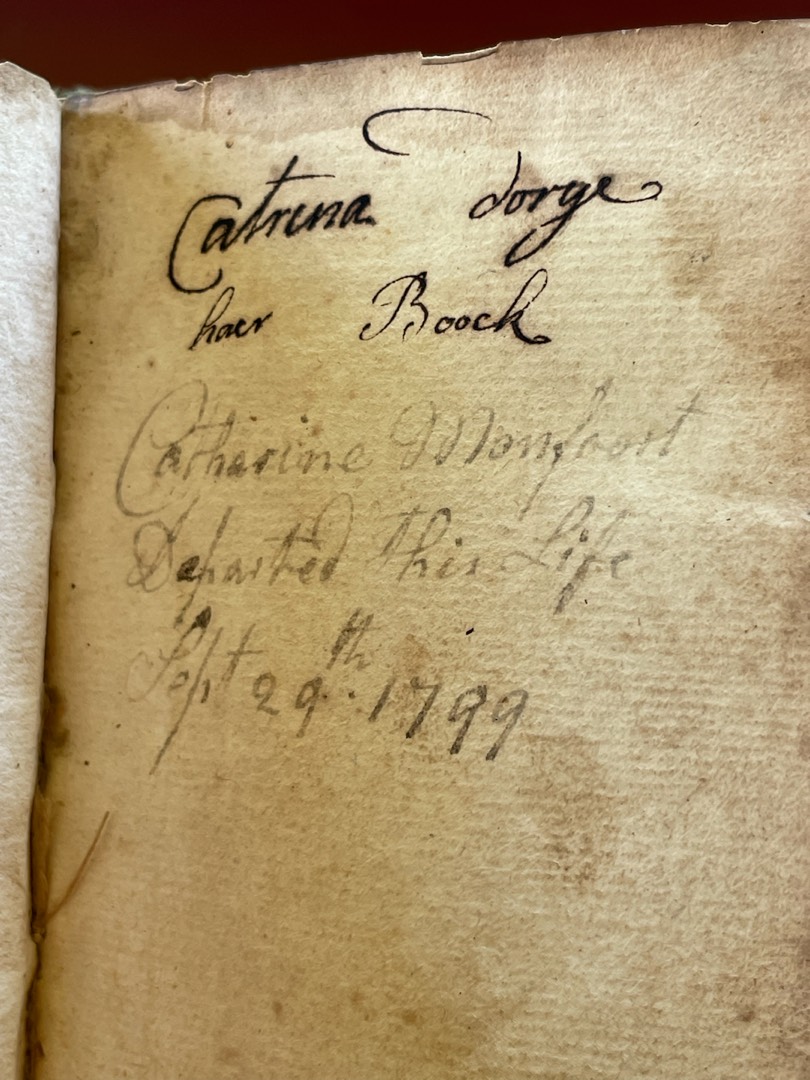 Catrina dorye
haer Boock
Catharine Monfoort
Departed This Life
Sept 29th. 1799